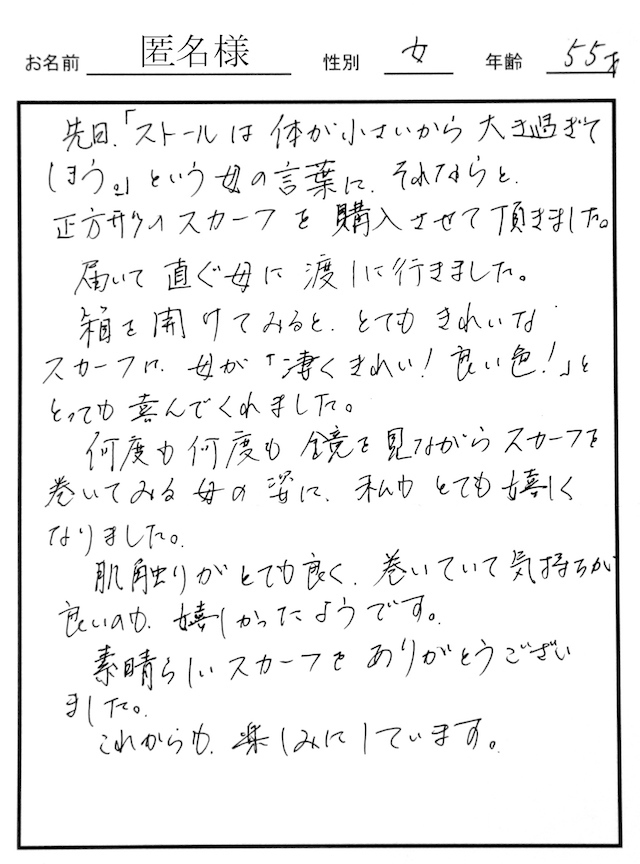 お名前 匿名様 性別 女 年齢 55才
先日、「ストールは体が小さいから大き過ぎて
しまう。」という母の言葉に、それならと、
正方形のスカーフを購入させて頂きました。
届いて直ぐ母に渡しに行きました。
箱を開けてみると、とてもきれいな
スカーフに、母が「凄くきれい!良い色!」と
とっても喜んでくれました。
何度も何度も鏡を見ながらスカーフを
巻いてみる母の姿に、私もとても嬉しく
なりました。
肌触りがとても良く、巻いていて気持ちが
良いのも、嬉しかったようです。
素晴らしいスカーフをありがとうござい
ました。
これからも、楽しみにしています。